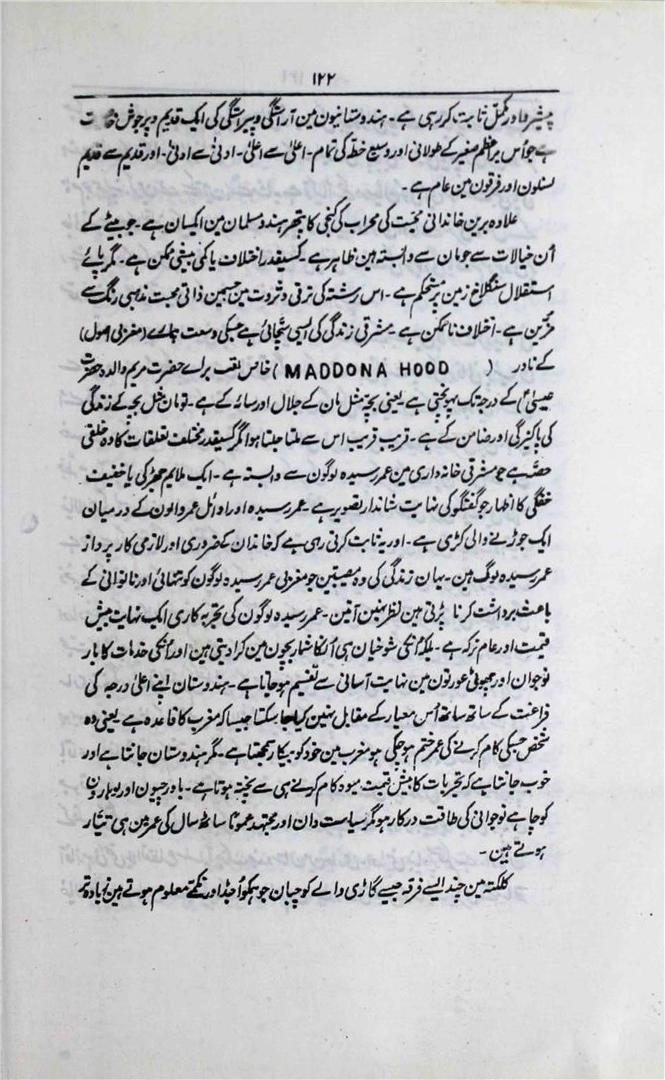 ۱۲۲
پیشرو اور مکمل ثابت کر رہی ہے۔ ہندوستانیون مین آراستگی و پیراستگی کی ایک قدیم و پرجوش
ہے جو اُس براعظم صغیر کے طولانی اور وسیع خطہ کی تمام۔ اعلیٰ سے اعلیٰ۔ ادنیٰ سے ادنیٰ۔ اور قدیم سے قدیم
نسلون اور فرقون مین عام ہے۔
علاوہ برین خاندانی محبت کی محراب کی کنجی کا پتھر ہندو مسلمان مین ایکسان ہے۔ جو بیٹے کے
اُن خیالات سے جو مان سے وابستہ ہین ظاہر ہے۔ کسیقدر اختلاف یا کمی بیشی ممکن ہے۔ مگر پائے
استقلال سنگلاخ زمین پر مستحکم ہے۔ اس رشتہ کی ترقی و ثروت مین جسمین ذاتی محبت مذہبی رنگ سے
مزین ہے۔ اختلاف ناممکن ہے۔ مشرقی زندگی کی ایسی سچائی ہے جسکی وسعت ہمارے (مغربی اصول)
کے نادر ( MADDONA HOOD ) خاص لقب براے حضرت مریم والدہ حضرت
عیسیٰؑ کے درجہ تک پہونچتی ہے۔ یعنی بچہ مثل مان کے جلال اور سایہ کے ہے۔ تو مان مثل بچہ کے زندگی
کی پاکیزگی اور ضامن کے ہے۔ قریب قریب اس سے ملتا جلتا ہوا مگر کسیقدر مختلف تعلقات کا وہ خلقی
حصہ ہے جو مشرقی خانہ داری مین عمر رسیدہ لوگون سے وابستہ ہے۔ ایک ملایم جھڑکی یا خفیف
خفگی کا اظہار جو گفتگو کی نہایت شاندار تصویر ہے۔ عمر رسیدہ اور اوائل عمر والون کے درمیان
ایک جوڑنے والی کڑی ہے۔ اور یہ ثابت کرتی رہی ہے کہ خاندان کے ضروری اور لازمی کارپرداز
عمر رسیدہ لوگ ہین۔ یہان زندگی کی وہ مصیبتین جو مغربی عمر رسیدہ لوگون کو تنہائی اور ناتوانی کے
باعث برداشت کرنا پڑتی ہین نظر نہین آتین۔ عمر رسیدہ لوگون کی تجربہ کاری ایک نہایت بیش
قیمت اور عام ترکہ ہے۔ بلکہ اُنکی شوخیان ہی اُنکا شمار بچون مین کرادیتی ہین اور اُنکی خدمات کا بار
نوجوان اور چھوٹی عورتون مین نہایت آسانی سے تقسیم ہوجاتا ہے۔ ہندوستان اپنے اعلیٰ درجہ کی
فراغت کے ساتھ ساتھ اُس معیار کے مقابل نہین کیا جاسکتا جیسا کہ مغرب کا قاعدہ ہے یعنی وہ
شخص جسکی کام کرنے کی عمر ختم ہوچکی ہو مغرب مین خود کو بیکار سمجھتا ہے۔ مگر ہندوستان جانتا ہے اور
خوب جانتا ہے کہ تجربات کا بیش قیمت میوہ کام کرنے ہی سے پختہ ہوتا ہے۔ باورچیون اور لوہارون
کو چاہے نوجوانی کی طاقت درکار ہو مگر سیاست دان اور مجتہد عموماً ساٹھ سال کی عمر مین ہی تیار
ہوتے ہین۔
کلکتہ مین چند ایسے فرقہ جیسے گاڑی والے کوچبان جو ہمکو اُجڈ اور نکمے معلوم ہوتے ہین زیادہ تر